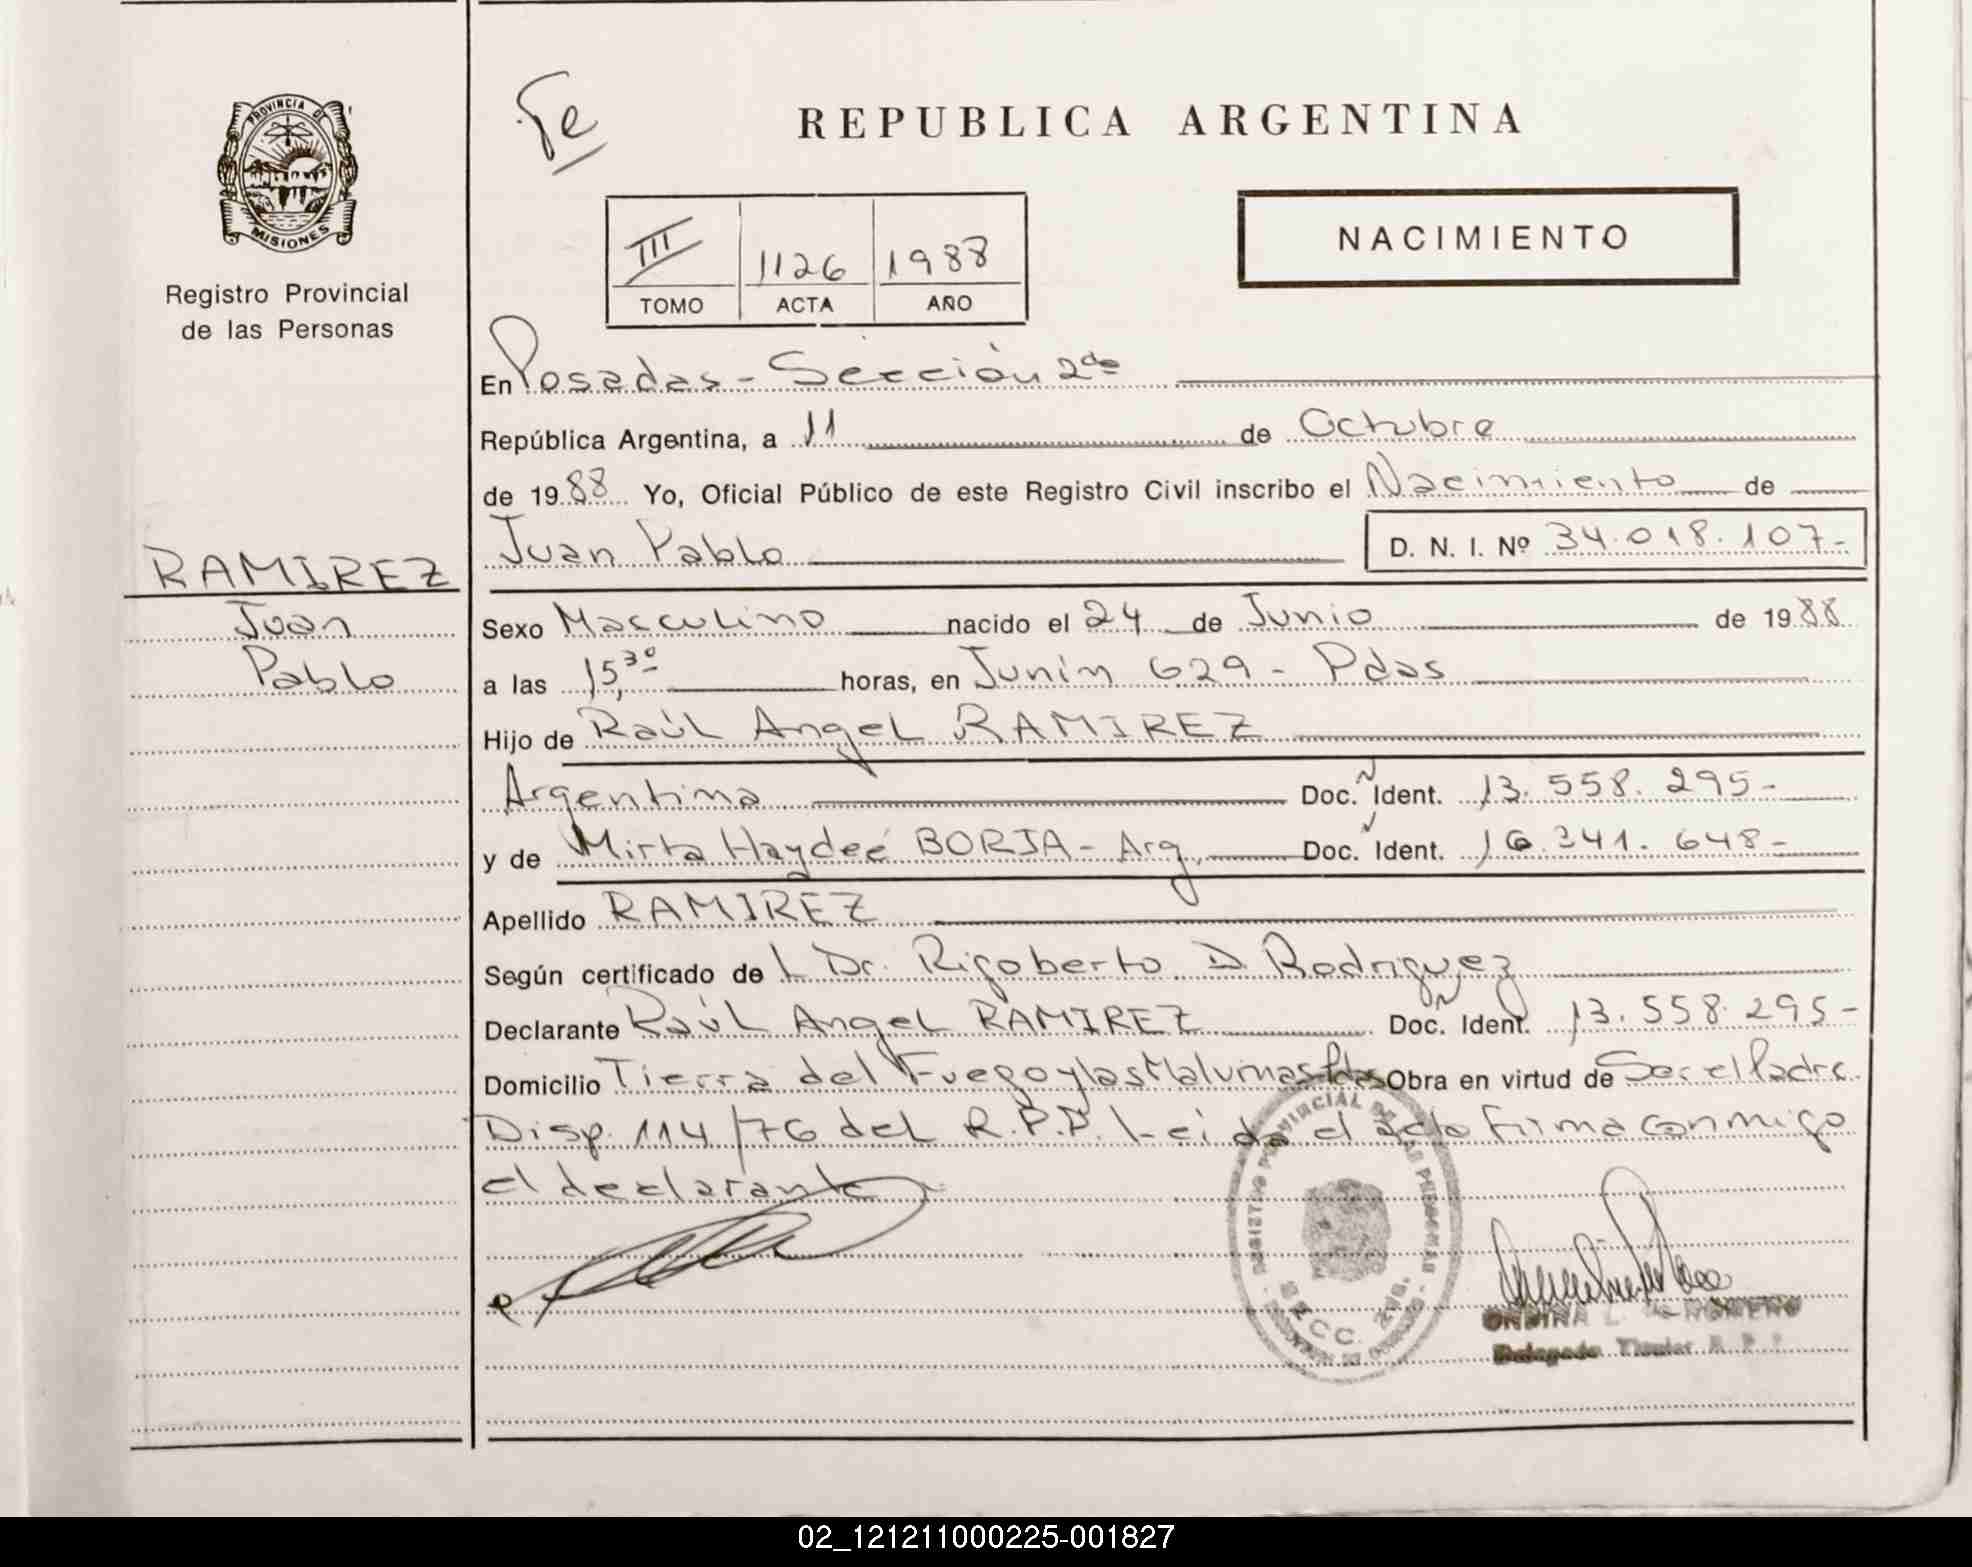 PROVINCIA DE
MISIONES
Registro Provincial
de las Personas
RAMIREZ
Juan
Pablo
REPUBLICA ARGENTINA
NACIMIENTO
III 1126 1988
TOMO ACTA AÑO
En Posadas - Sección 2da
República Argentina, a 11 de Octubre
de 1988 Yo, Oficial Público de este Registro Civil inscribo el Nacimiento de
Juan Pablo D. N. I. Nº 34.018.107-
Sexo Masculino nacido el 24 de Junio de 1988
a las 15,30 horas, en Junín 629 - Pdas
Hijo de Raúl Angel RAMIREZ
Argentina Doc. Ident. 13.558.295-
y de Mirta Haydeé BORJA - Arg. Doc. Ident. 16.341.648-
Apellido RAMIREZ
Según certificado de L Dr. Rigoberto D. Rodriguez
Declarante Raúl Angel RAMIREZ Doc. Ident. 13.558.295-
Domicilio Tierra del Fuego y las Malvinas Pdas Obra en virtud de Ser el Padre
Disp. 114/76 del R.P.P. Leida el acta firma conmigo
el declarante
REGISTRO PROVINCIAL DE LAS PERSONAS
SECC. 2da.
ONDINA L. DE MORENO
Delegado Titular R. P.
02_121211000225-001827